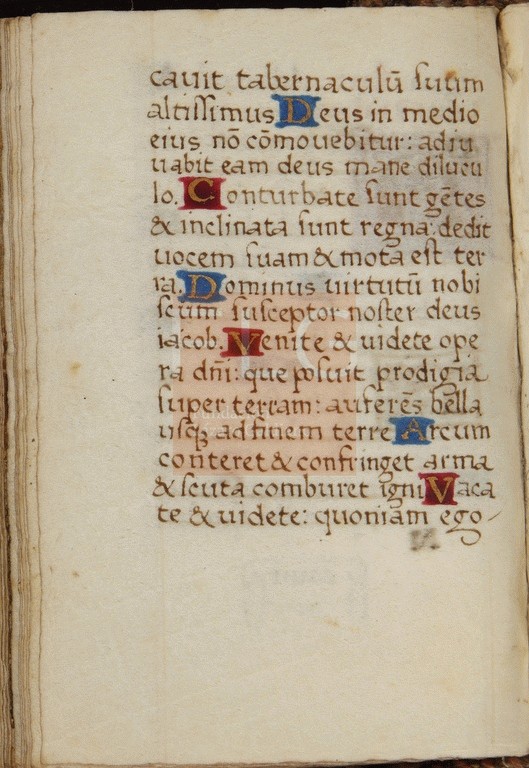 cauit tabernaculū suum
altissimus Deus in medio
eius nō cōmouebitur: adiu
uabit eam deus mane dilucu
lo. Conturbate sunt gētes
& inclinata sunt regna: dedit
uocem suam & mota est ter
ra. Dominus uirtutū nobi
scum susceptor noster deus
iacob. Venite & uidete ope
ra dñi: que posuit prodigia
super terram: auferēs bella
usqꝫ ad finem terre Arcum
conteret & confringet arma
& scuta comburet igni Vaca
te & uidete: quoniam ego